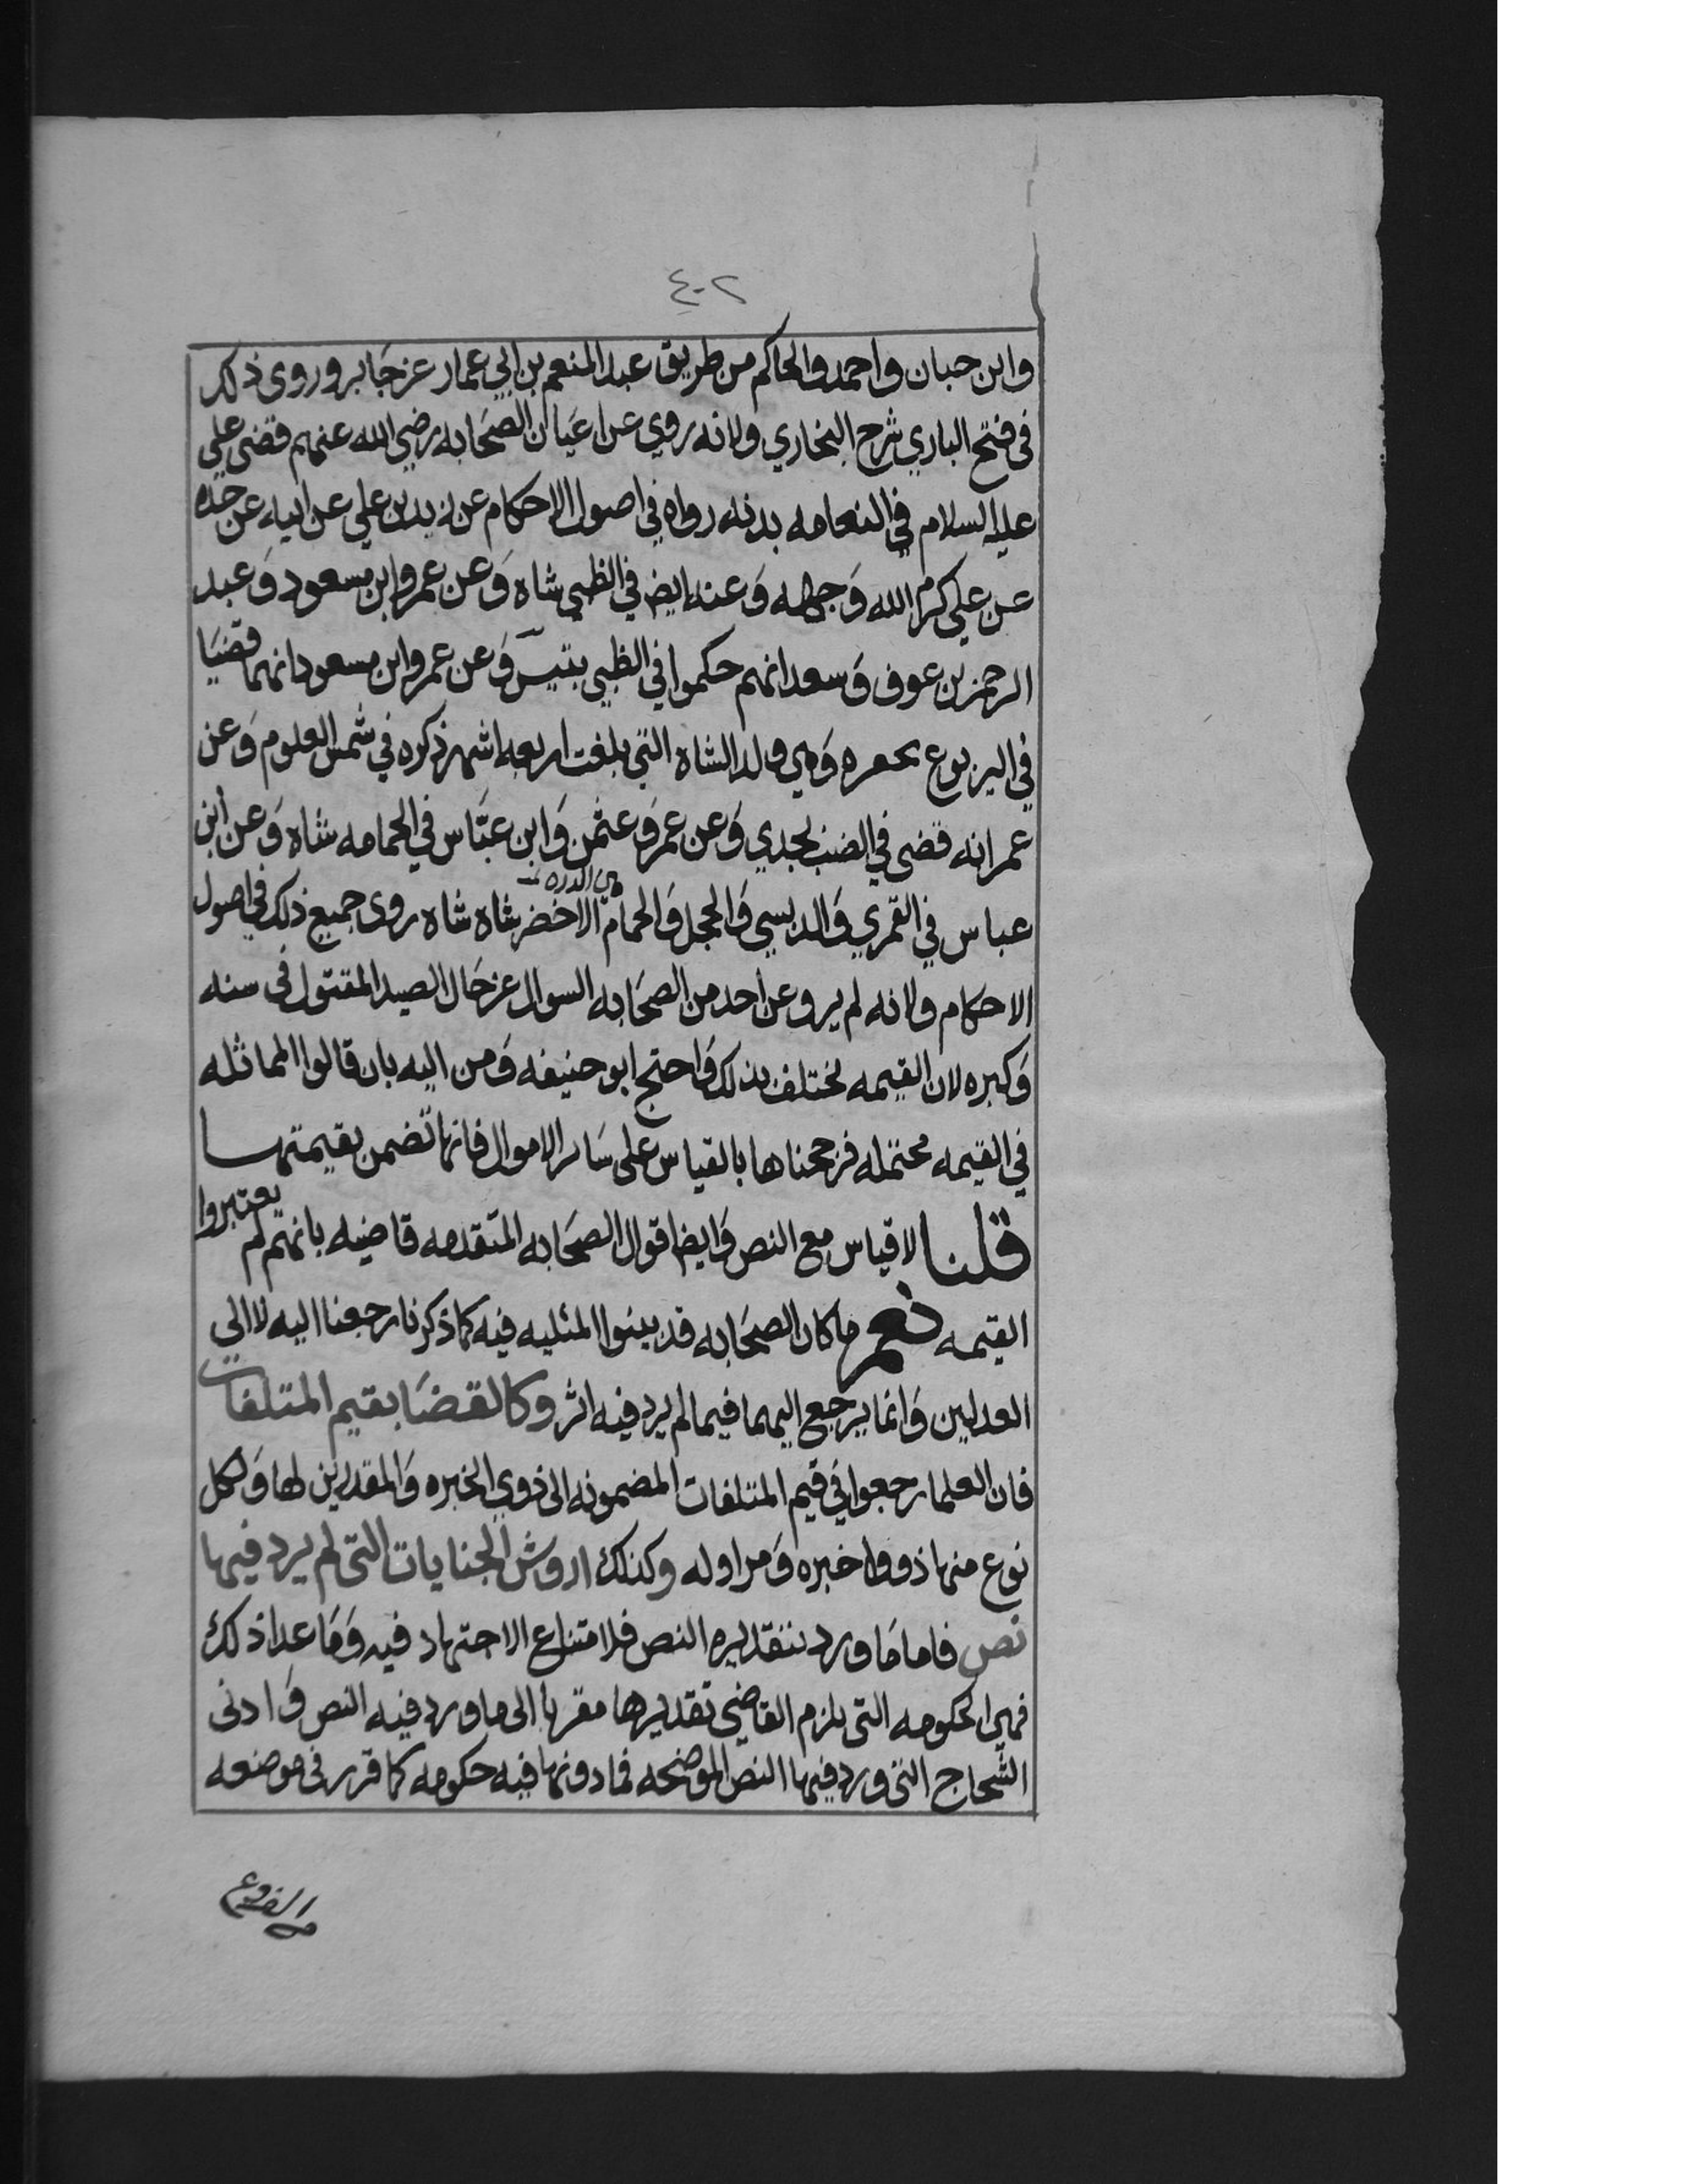 ٤٠٢
وابن حبان واحمد والحاكم من طريق عبد المنعم بن ابي عمار عن جابر وروى ذلك
في فتح الباري شرح البخاري ولانه روي عن اعيان الصحابه رضي الله عنهم قضى علي
عليه السلام في النعامه بدنه رواه في اصول الاحكام عن زيد بن علي عن ابيه عن جده
عن علي كرم الله وجهه وعنه ايض في الظبي شاه وعن عمر وابن مسعود وعبد
الرحمن بن عوف وسعد انهم حكموا في الظبي بتيس وعن عمر وابن مسعود انهما قضيا
في اليربوع بجفره وهي ولد الشاه التي بلغت اربعه اشهر ذكره في شمس العلوم وعن
عمر انه قضى في الضب بجدي وعن عمر وعثمن وابن عباس في الحمامه شاه وعن ابن
عباس في القمري والدبسي والحجل والحمام الاخضر شاه شاه روى جميع ذلك في اصول
الاحكام ولانه لم يرو عن احد من الصحابه السوال عن حال الصيد المقتول في سنه
وكبره لان القيمه تختلف بذلك واحتج ابو حنيفه ومن اليه بان قالوا المماثله
في القيمه محتمله فرجحناها بالقياس على ساير الاموال فانها تضمن بقيمتها
قلنا لا قياس مع النص وايضا اقوال الصحابه المتقدمه قاضيه بانهم لم يعتبروا
القيمه نعم ما كان الصحابه قد بينوا المثليه فيه كما ذكرنا رجعنا اليه لا الى
العدلين وانما يرجع اليهما فيما لم يرد فيه اثر وكالقضا بقيم المتلفات
فان العلما رجعوا في قيم المتلفات المضمونه الى ذوي الخبره والمقدرين لها ولكل
نوع منها ذووا خبره ومزاوله وكذلك اروش الجنايات التي لم يرد فيها
نص فاما ما ورد بتقديره النص فلا متناع الاجتهاد فيه وما عدا ذلك
فهي الحكومه التي يلزم القاضي تقديرها مقربا الى ما ورد فيه النص وادنى
الشجاج التي ورد فيها النص الموضحه فما دونها فيه حكومه كما قرر في موضعه
من الفروع